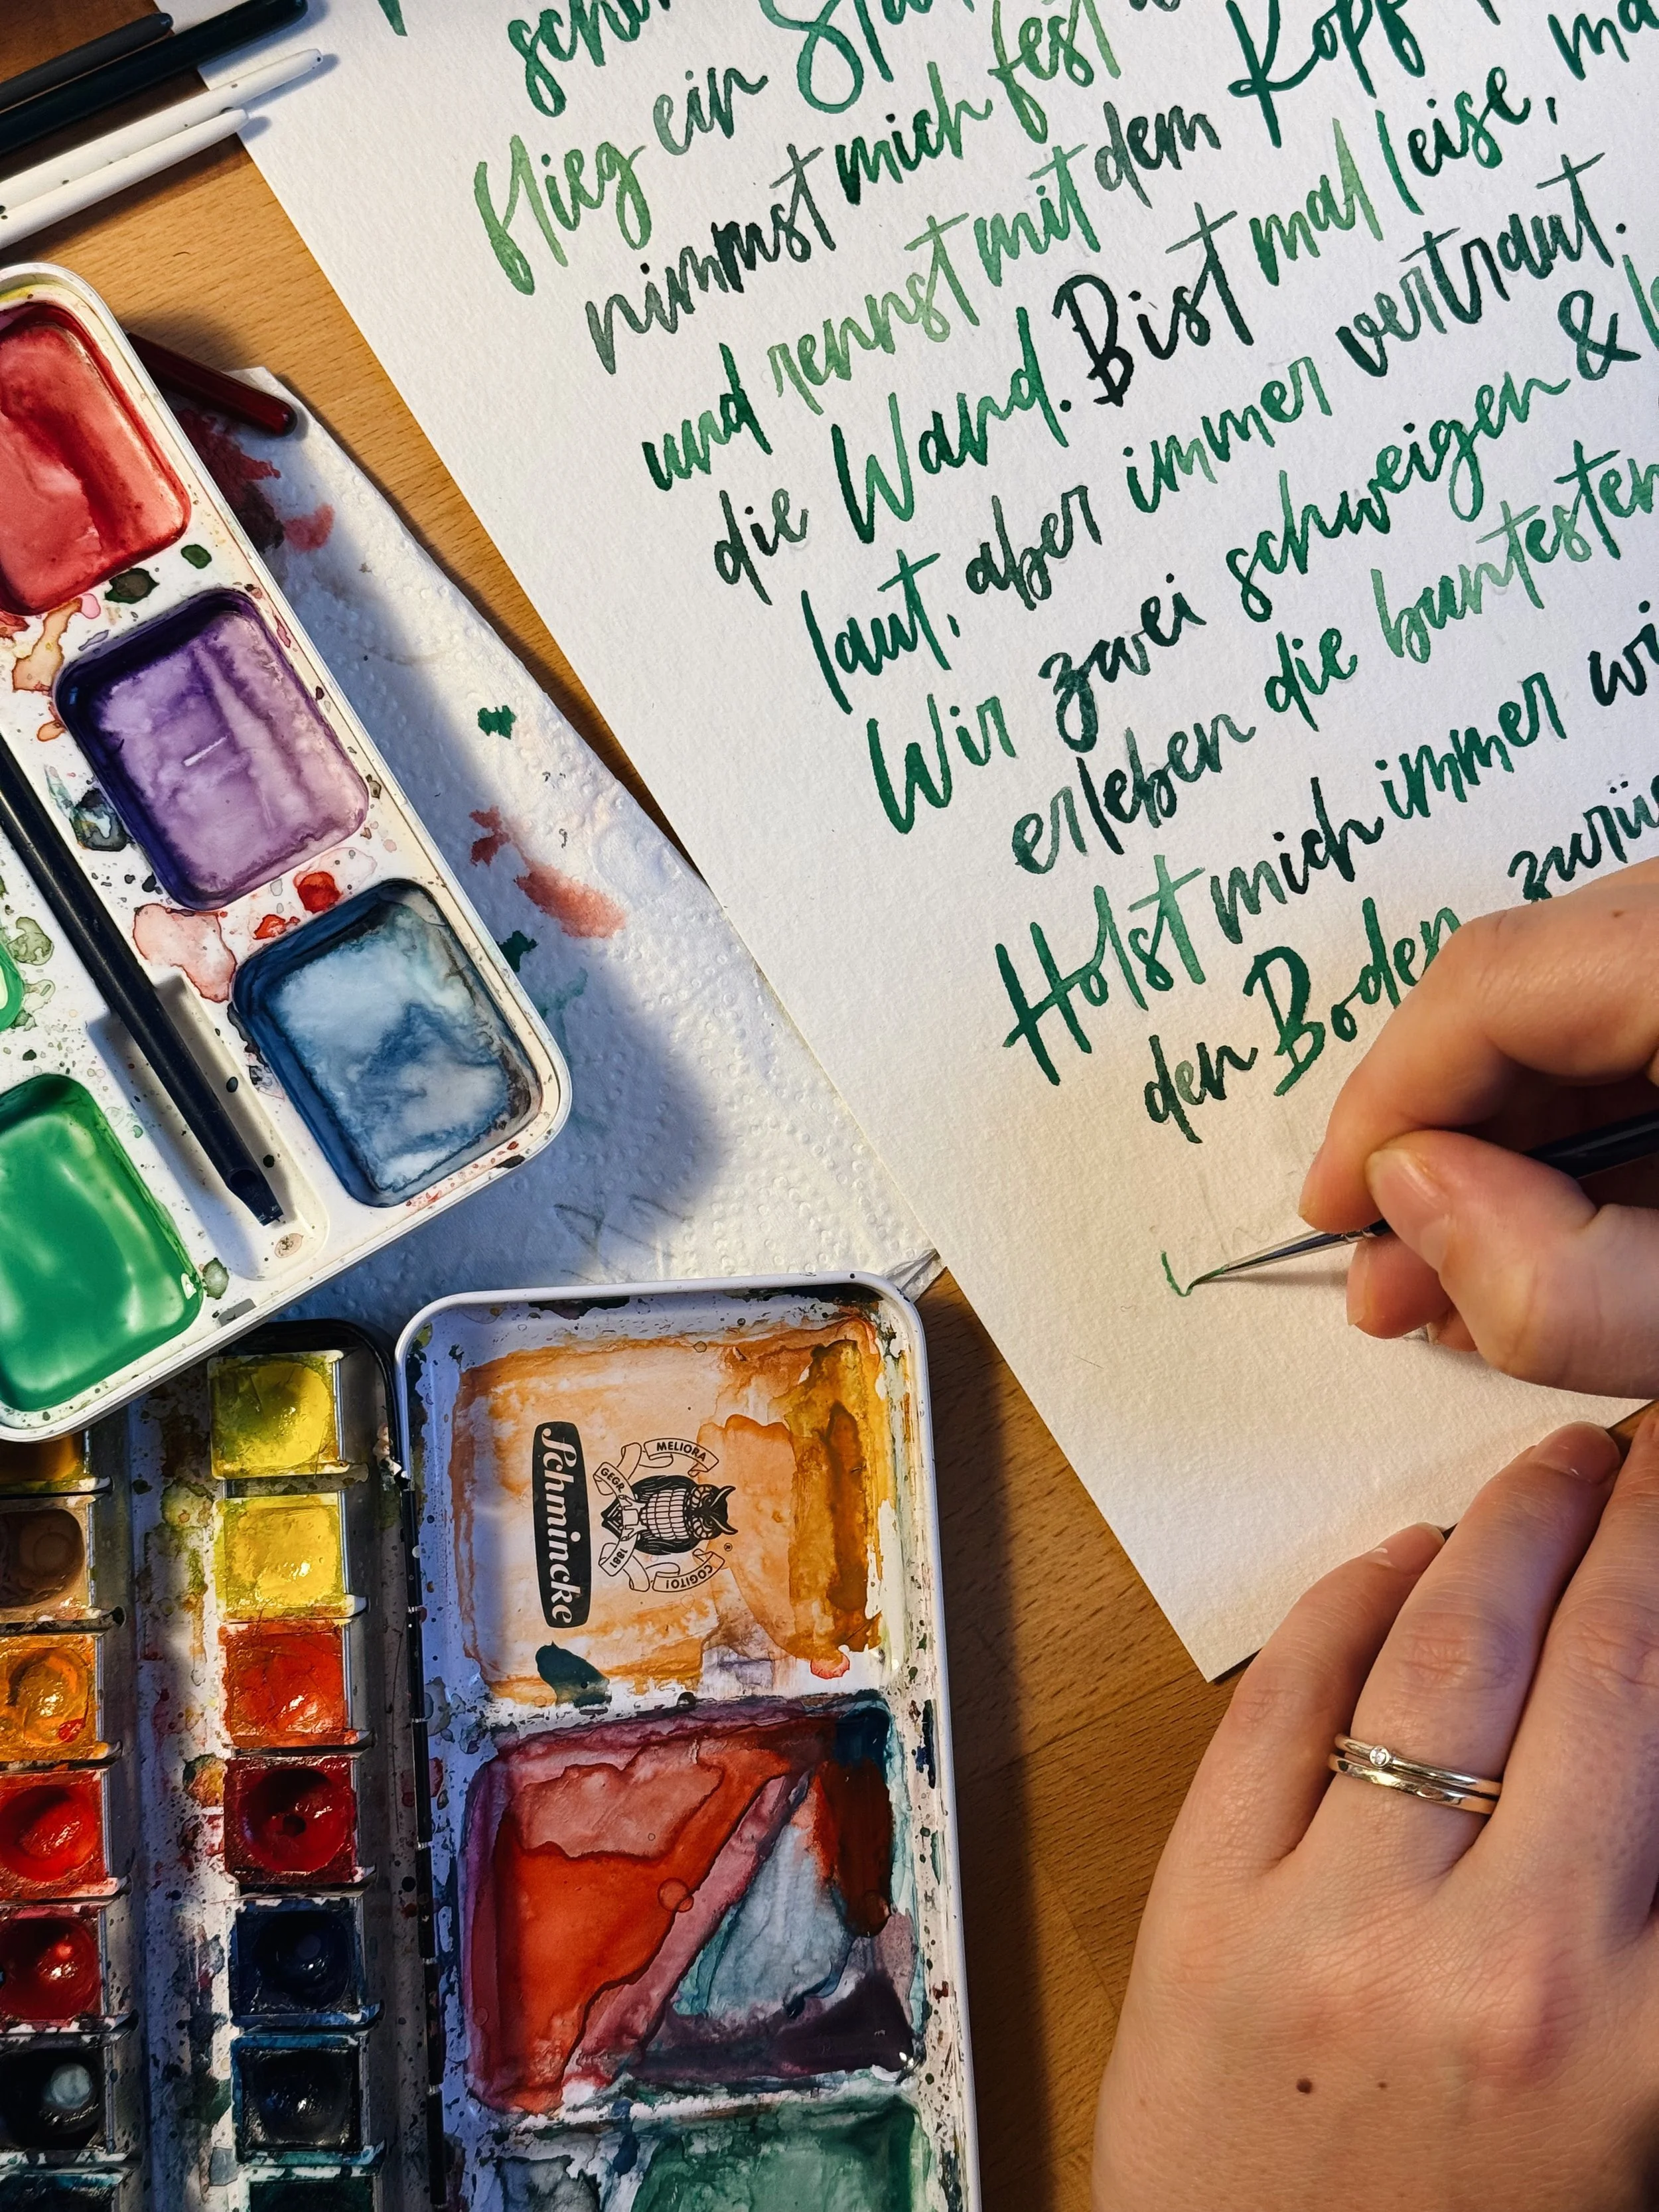 flieg ein
nimmst mich fest
und rennst mit dem Kopf
die Wand. Bist mal leise,
laut, aber immer vertraut.
Wir zwei schweigen &
erleben die buntesten
Holst mich immer
den Boden
Schmincke
MELIORA
COGITO!
GEGR.
1881
®